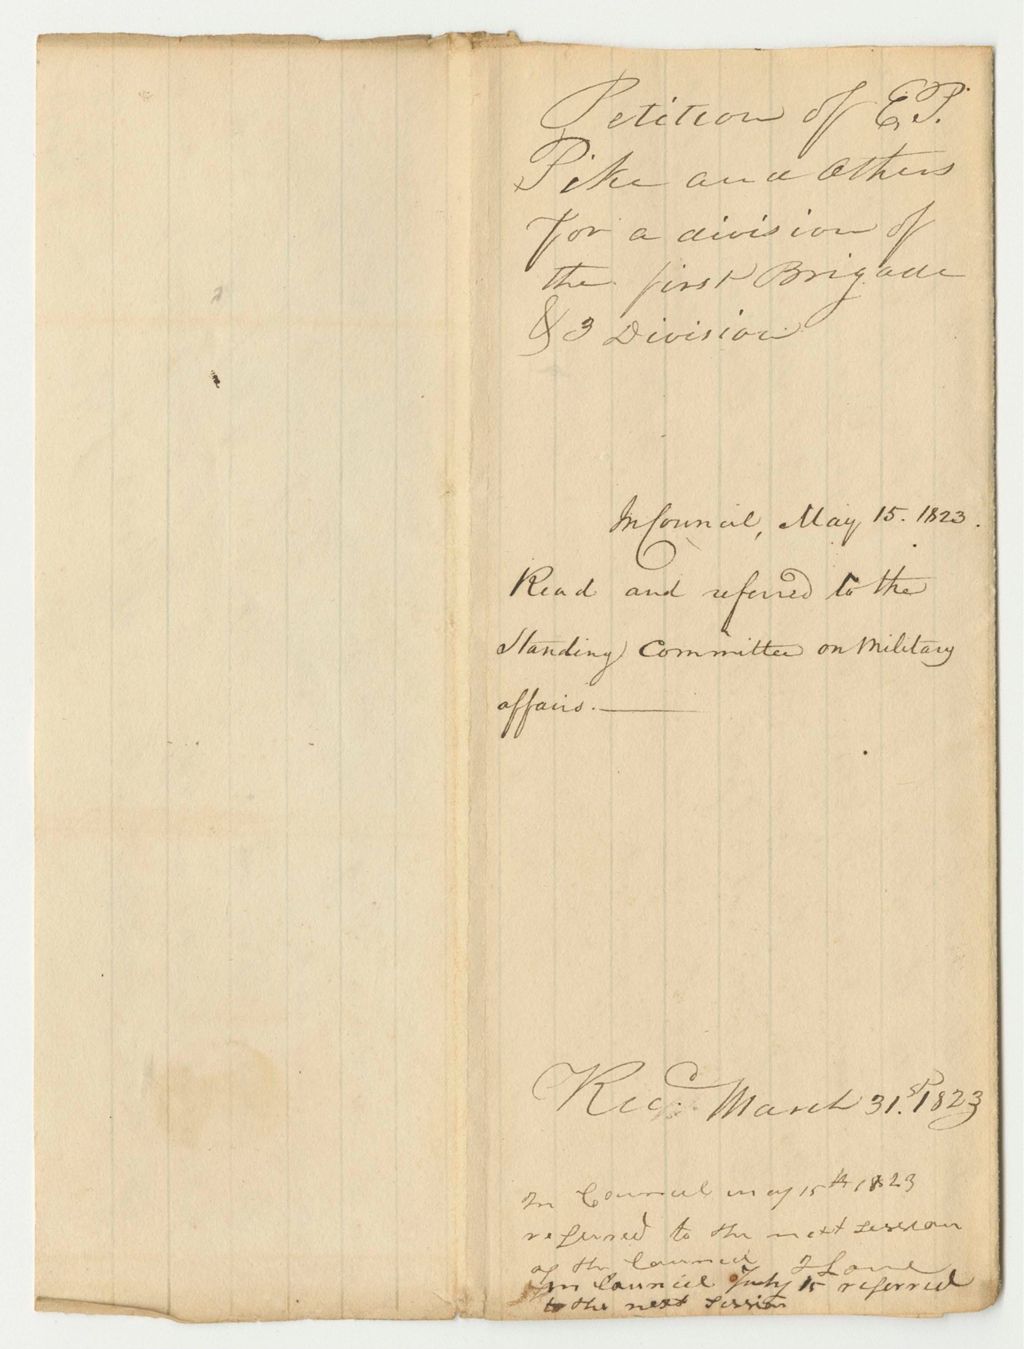 Petition of E. P.
Pike and Others
for a division of
the first Brigade
& 3 Division
In Council, May 15. 1823.
Read and referred to the
Standing Committee on Military
affairs.
Recd. March 31.st 1823
In Council may 15th 1823
referred to the next session
of the Council
In Council July 15 referred
to the next session